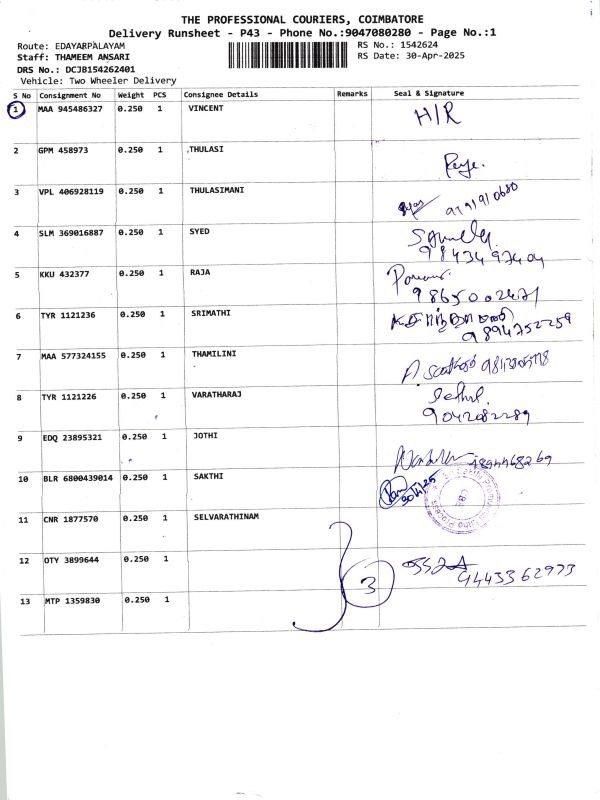 THE PROFESSIONAL COURIERS, COIMBATORE
Delivery Runsheet - P43 - Phone No.:9047080280 - Page No.:1
Route: EDAYARPALAYAM
Staff: THAMEEM ANSARI
DRS No.: DCJB154262401
Vehicle: Two Wheeler Delivery
RS No.: 1542624
RS Date: 30-Apr-2025
S No Consignment No Weight PCS Consignee Details Remarks Seal & Signature
1 MAA 945486327 0.250 1 VINCENT H/R
2 GPM 458973 0.250 1 THULASI
3 VPL 406928119 0.250 1 THULASIMANI 9191910680
4 SLM 369016887 0.250 1 SYED
5 KKU 432377 0.250 1 RAJA
6 TYR 1121236 0.250 1 SRIMATHI 9894752259
7 MAA 577324155 0.250 1 THAMILINI
8 TYR 1121226 0.250 1 VARATHARAJ 9042082289
9 EDQ 23895321 0.250 1 JOTHI
10 BLR 6800439014 0.250 1 SAKTHI 30/4/25
11 CNR 1877570 0.250 1 SELVARATHINAM
12 OTY 3899644 0.250 1 3 9443362973
13 MTP 1359830 0.250 1